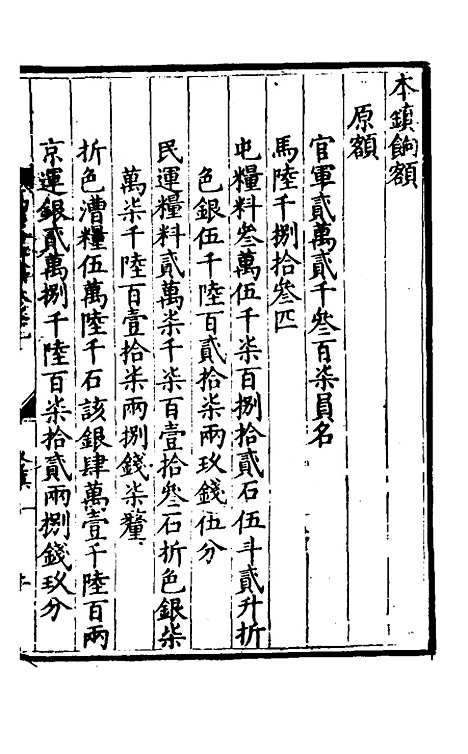 本鎮餉額
原額
官軍貳萬貳千叁百柒員名
馬陸千捌拾叁匹
屯糧料叁萬伍千柒百捌拾貳石伍斗貳升折
色銀伍千陸百貳拾柒兩玖錢伍分
民運糧料貳萬柒千柒百壹拾叁石折色銀柒
萬柒千陸百壹拾柒兩捌錢柒釐
折色漕糧伍萬陸千石該銀肆萬壹千陸百兩
京運銀貳萬捌千陸百柒拾貳兩捌錢玖分